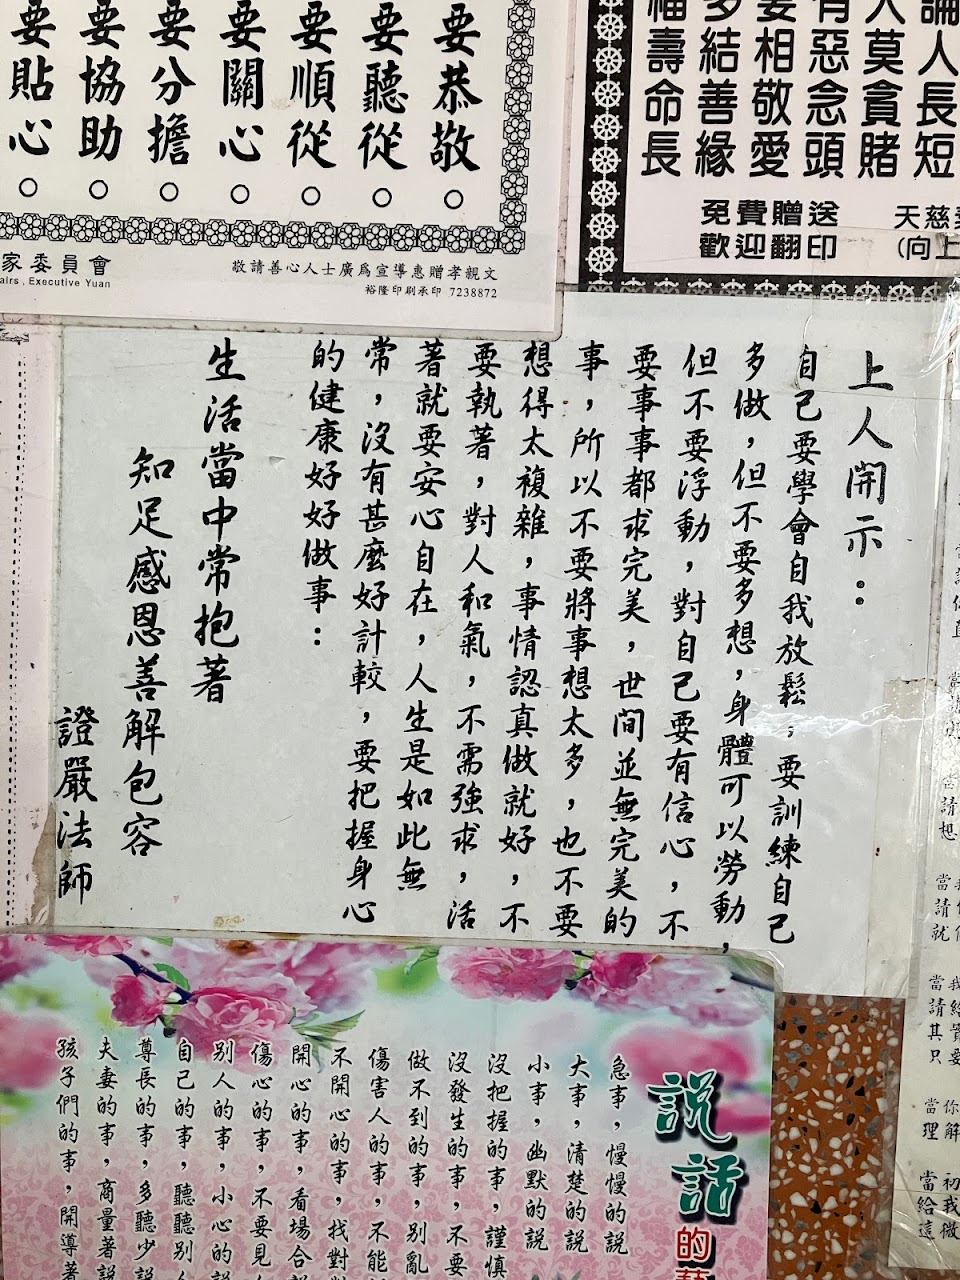 要恭敬
要聽從
要順從
要關心
要分擔
要協助
要貼心
家委員會
airs, Executive Yuan
敬請善心人士廣為宣導惠贈孝親文
裕隆印刷承印 7238872
論人長短
人莫貪賭
有惡念頭
要相敬愛
多結善緣
福壽命長
免費贈送
歡迎翻印
天慈
(向上
上人開示：
自己要學會自我放鬆，要訓練自己
多做，但不要多想，身體可以勞動，
但不要浮動，對自己要有信心，不
要事事都求完美，世間並無完美的
事，所以不要將事想太多，也不要
想得太複雜，事情認真做就好，不
要執著，對人和氣，不需強求，活
著就要安心自在，人生是如此無
常，沒有甚麼好計較，要把握身心
的健康好好做事：
生活當中常抱著
知足感恩善解包容
證嚴法師
說話
的
急事，慢慢的說
大事，清楚的說
小事，幽默的說
沒把握的事，謹慎
沒發生的事，不要
做不到的事，別亂
傷害人的事，不能
不開心的事，找對
開心的事，看場合
傷心的事，不要見
別人的事，小心的
自己的事，聽聽別
尊長的事，多聽少
夫妻的事，商量著
孩子們的事，開導著
當請想
當請就
當請其只
當理
當給這